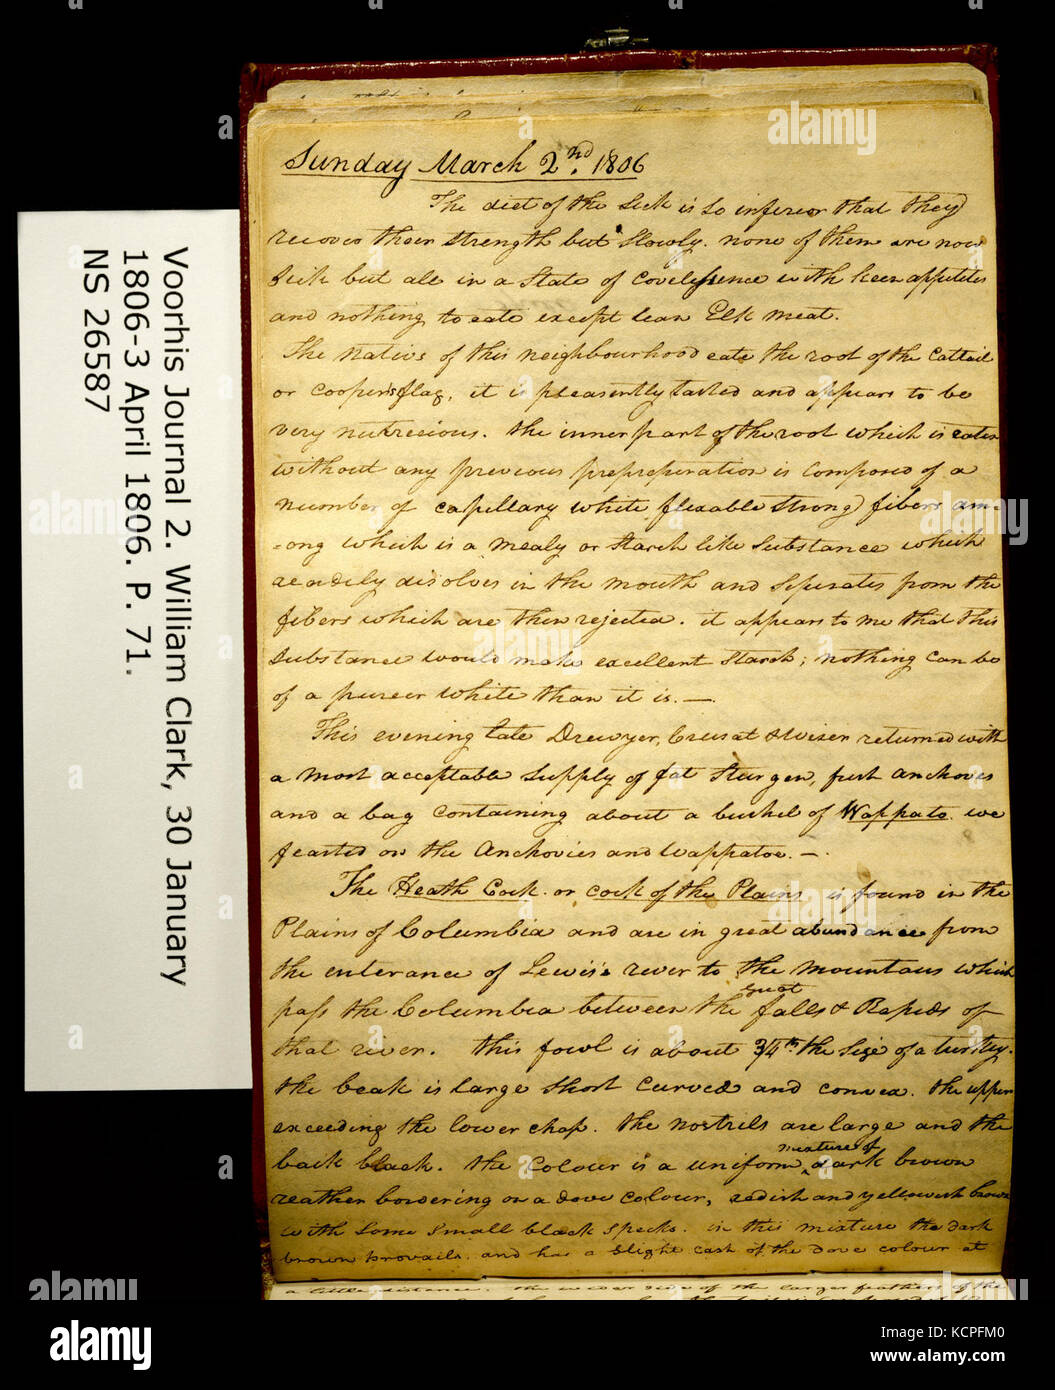 Sunday March 2nd. 1806
The diet of the Sick is So inferior that they
recover their Strength but Slowly. none of them are now
Sick but all in a State of Covelessence with keen appetites
and nothing to eate except lean Elk meat.
The nativs of this neighbourhood eate the root of the Cattail
or Cooper's flag, it is pleasently tasted and appears to be
very nutrecious. the inner part of the root which is eaten
without any previous prepreperation is Composed of a
number of capillary white flexable Strong fibers am=
=ong which is a mealy or Starch like Substance which
readily disolves in the mouth and Seperates from the
fibers which are then rejected. it appears to me that this
Substance would make excellent Starch; nothing can be
of a pureer white than it is. —
This evening late Drewyer, Crusat & Wiser returned with
a most acceptable Supply of fat Sturgen, fresh anchovies
and a bag Containing about a bushel of Wappato. we
feasted on the Anchovies and wappatoe. —
The Heath Cock or cock of the Plains is found in the
Plains of Columbia and are in great abundance from
the enterance of Lewis's river to the mountains which
pass the Columbia between the great falls & Rapids of
that river. this fowl is about 3/4th the Size of a turkey.
the beak is large Short Curved and convex. the upper
exceeding the lower chap. the nostrils are large and the
back black. the Colour is a uniform mixture of dark brown
reather bordering on a dove colour, redish and yellowish brown
with Some Small black Specks. in this mixture the dark
brown provails. and has a Slight cast of the dove colour at
a little distance. the wider side of the larger feathers of the
Voorhis Journal 2. William Clark, 30 January
1806-3 April 1806. P. 71.
NS 26587
alamy
a
Image ID: KCPFM0
www.alamy.com